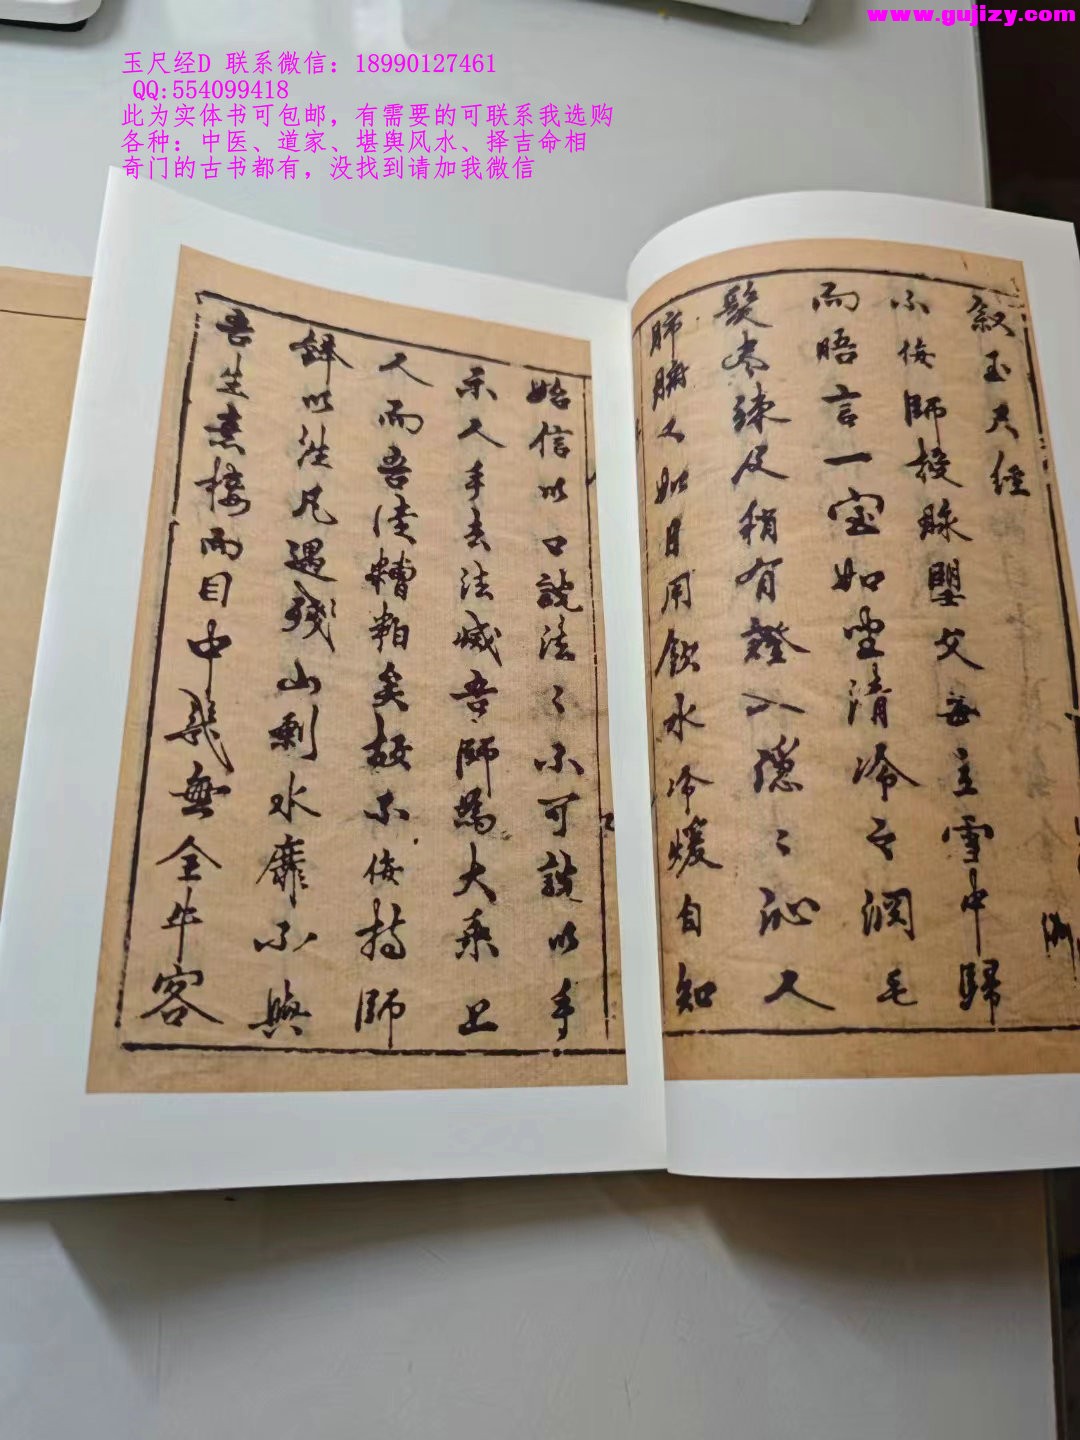 www.gujizy.com
玉尺经D 联系微信：18990127461
QQ:554099418
此为实体书可包邮，有需要的可联系我选购
各种：中医、道家、堪舆风水、择吉命相
奇门的古书都有，没找到请加我微信
叙玉尺經
小侮師授
父每主雪中歸
而晤言一室如坐清冷之淵毛
髮盡竦及稍有證入隱〻沁人
肺腑人如日用飲水冷煖自知
始信以口說法〻不可說以手
示人手去法滅吾師為大乘上
人而吾法糟粕矣故小侮持師
鋒以往凡遇殘山剩水靡不與
吾生素接而目中幾無全牛容